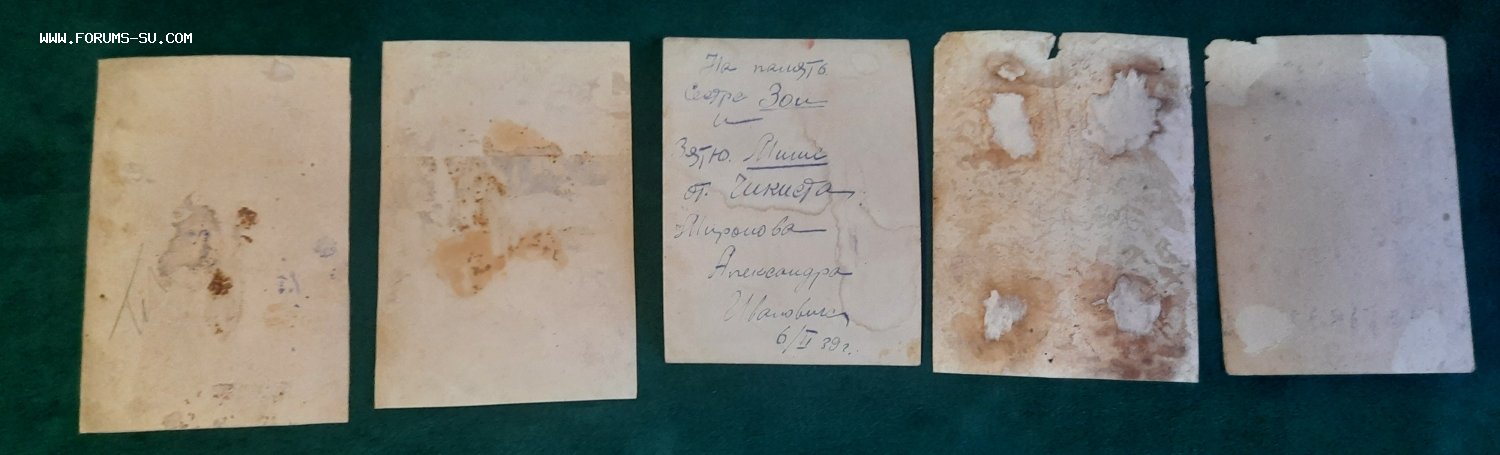 WWW.FORUMS-SU.COM
На память
Сестре Зои
и
Зятю. Миши
от. Чикиста
Миронова
Александра
Ивановича
6/II 39 г.